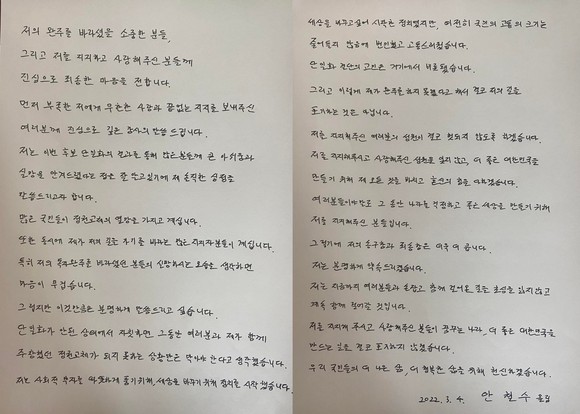 저의 완주를 바라셨을 소중한 분들,
그리고 저를 지지하고 사랑해주신 분들께
진심으로 죄송한 마음을 전합니다.
먼저 부족한 저에게 무한한 사랑과 끊없는 지지를 보내주신
여러분께 진심으로 깊은 감사의 말씀 드립니다.
저는 이번 후보 단일화의 결과를 통해 많은 분들께 큰 아쉬움과
실망을 안겨드렸다는 점을 잘 알고 있기에 제 솔직한 심정을
말씀드리고자 합니다.
많은 국민들이 정권교체의 열망을 가지고 계십니다.
또한 동시에 제가 저의 길을 가기를 바라는 많은 지지자분들이 계십니다.
특히 저의 독자완주를 바라셨던 분들의 실망하시는 모습을 생각하면
마음이 무겁습니다.
그렇지만 이것만큼은 분명하게 말씀드리고 싶습니다.
단일화가 안된 상태에서 자칫하면 그동안 여러분과 제가 함께
주장했던 정권교체가 되지 못하는 상황만은 막아야 한다고 생각했습니다.
저는 사회적 약자를 따뜻하게 품기 위해, 세상을 바꾸기 위해 정치를 시작했습니다.
세상을 바꾸고 싶어 시작한 정치였지만, 여전히 국민의 고통의 크기는
줄어들지 않음에 번민했고 고통스러웠습니다.
단일화 결단의 고민은 거기에서 비롯됐습니다.
그리고 이렇게 제가 완주를 하지 못했다고 해서 결코 저의 길을
포기하는 것은 아닙니다.
저를 지지해주신 여러분의 성원이 결코 헛되지 않도록 하겠습니다.
저를 지지해주시고 사랑해주신 성원을 잊지 않고, 더 좋은 대한민국을
만들기 위해 제 모든 것을 바치고 혼신의 힘을 다하겠습니다.
여러분들이야말로 그 동안 나라를 걱정하고 좋은 세상을 만들기 위해
저를 지지해주신 분들입니다.
그렇기에 저의 송구함과 죄송함은 더욱 더 큽니다.
저는 분명하게 약속드리겠습니다.
저는 지금까지 여러분들과 손잡고 함께 걸어온 길을 초심을 잃지 않고
계속 함께 걸어갈 것입니다.
저를 지지해 주시고 사랑해주신 분들이 꿈꾸는 나라, 더 좋은 대한민국을
만드는 길을 결코 포기하지 않겠습니다.
우리 국민들의 더 나은 삶, 더 행복한 삶을 위해 헌신하겠습니다.
2022. 3. 4. 안 철 수 올림